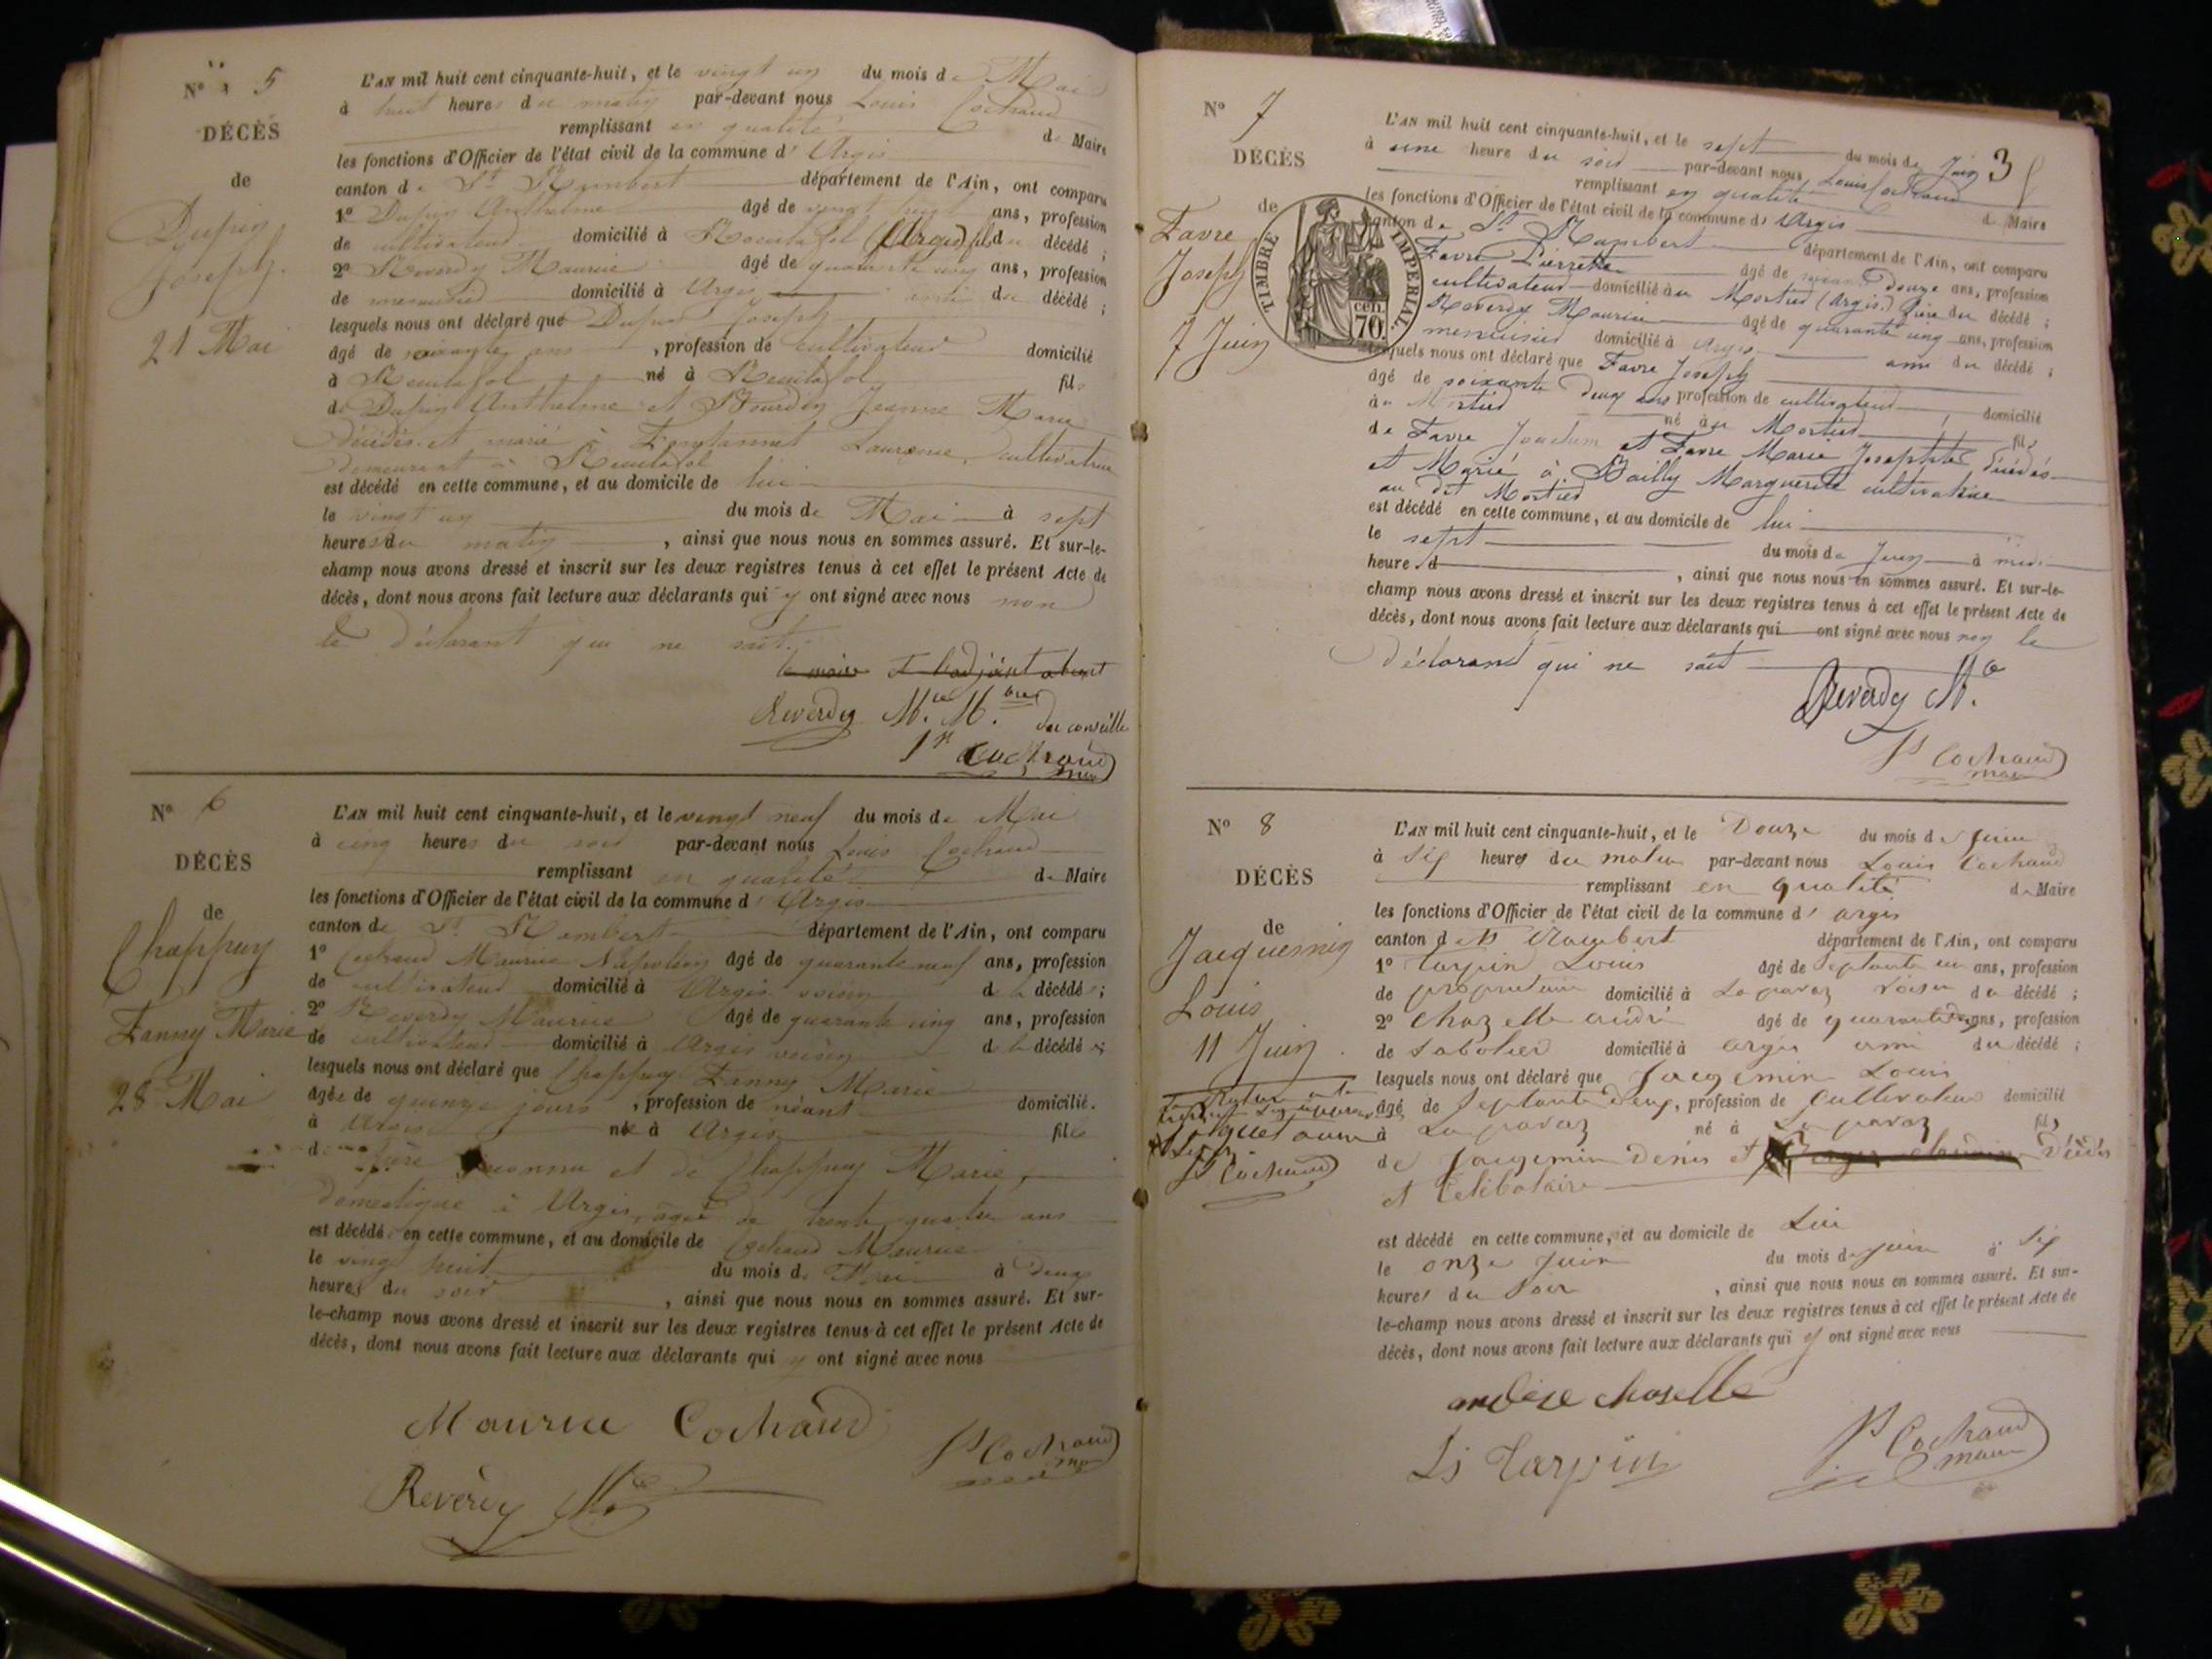 N° 5
DÉCÈS
de
Dupuy
Joseph.
21 Mai
L'AN mil huit cent cinquante-huit, et le vingt un du mois de Mai
à huit heures du matin par-devant nous Louis Cochaud
remplissant en qualité de Maire
les fonctions d'Officier de l'état civil de la commune d' Argis
canton de St Rambert département de l'Ain, ont comparu
1° Dupuy Anthelme âgé de vingt huit ans, profession
de cultivateur domicilié à (Argis) fils du décédé ;
2° Reverdy Maurice âgé de quarante cinq ans, profession
de menuisier domicilié à Argis ami du décédé ;
lesquels nous ont déclaré que Dupuy Joseph
âgé de soixante ans, profession de cultivateur domicilié
à né à fils
de Dupuy Anthelme et Jeanne Marie
décédés et marié à Laurence, cultivatrice
demeurant à
est décédé en cette commune, et au domicile de lui
le vingt un du mois de Mai à sept
heures du matin, ainsi que nous nous en sommes assuré. Et sur-le-
champ nous avons dressé et inscrit sur les deux registres tenus à cet effet le présent Acte de
décès, dont nous avons fait lecture aux déclarants qui y ont signé avec nous non
le déclarant qui ne sait.
le maire et l'adjoint absent
Reverdy Mce M.bre du conseille
Ls Cochaud
maire
N° 6
DÉCÈS
de
Chappuy
Fanny Marie
28 Mai
L'AN mil huit cent cinquante-huit, et le vingt neuf du mois de Mai
à cinq heures du soir par-devant nous Louis Cochaud
remplissant en qualité de Maire
les fonctions d'Officier de l'état civil de la commune d' Argis
canton de St Rambert département de l'Ain, ont comparu
1° Cochaud Maurice Napoléon âgé de quarante neuf ans, profession
de cultivateur domicilié à Argis voisin de la décédée ;
2° Reverdy Maurice âgé de quarante cinq ans, profession
de cultivateur domicilié à Argis voisin de la décédée ;
lesquels nous ont déclaré que Chappuy Fanny Marie
âgée de quinze jours, profession de néant domicilié.
à Argis née à Argis fille
de père inconnu et de Chappuy Marie,
domestique à Argis, âgée de trente quatre ans
est décédée en cette commune, et au domicile de Cochaud Maurice
le vingt huit du mois de Mai à deux
heures du soir, ainsi que nous nous en sommes assuré. Et sur-
le-champ nous avons dressé et inscrit sur les deux registres tenus à cet effet le présent Acte de
décès, dont nous avons fait lecture aux déclarants qui y ont signé avec nous
Maurice Cochaud
Ls Cochaud
maire
Reverdy Mce
3
N° 7
DÉCÈS
de
Favre
Joseph
7 Juin
TIMBRE IMPERIAL.
70 cen.
L'AN mil huit cent cinquante-huit, et le sept du mois de Juin
à une heure du soir par-devant nous Louis Cochaud
remplissant en qualité de Maire
les fonctions d'Officier de l'état civil de la commune d' Argis
canton de St Rambert département de l'Ain, ont comparu
Favre Pierre âgé de douze ans, profession
cultivateur domicilié au Mortier (Argis) frère du décédé ;
Reverdy Maurice âgé de quarante cinq ans, profession
menuisier domicilié à Argis ami du décédé ;
lesquels nous ont déclaré que Favre Joseph
âgé de soixante deux ans profession de cultivateur, domicilié
au Mortier né au Mortier fils
de Favre Joachim et Favre Marie Josephte décédés
et Marié à Bailly Marguerite cultivatrice
au dit Mortier
est décédé en cette commune, et au domicile de lui
le sept du mois de Juin à midi
heure d, ainsi que nous nous en sommes assuré. Et sur-le-
champ nous avons dressé et inscrit sur les deux registres tenus à cet effet le présent Acte de
décès, dont nous avons fait lecture aux déclarants qui ont signé avec nous non le
déclarant qui ne sait
Reverdy Mce
Ls Cochaud
maire
N° 8
DÉCÈS
de
Jacquemin
Louis
11 Juin
Ls Cochaud
L'AN mil huit cent cinquante-huit, et le Douze du mois de Juin
à Six heures du matin par-devant nous Louis Cochaud
remplissant en qualité de Maire
les fonctions d'Officier de l'état civil de la commune d' argis
canton de St Rambert département de l'Ain, ont comparu
1° Tarpin Louis âgé de Septante un ans, profession
de proprietaire domicilié à La pavaz voisin du décédé ;
2° Chazelle andré âgé de ans, profession
de Sabotier domicilié à argis ami du décédé ;
lesquels nous ont déclaré que Jacgemin Louis
âgé de Septante Deux, profession de Cultivateur domicilié
à La pavaz né à La pavaz fils
de Jacgemin Denis et Décédés
et Celibataire
est décédé en cette commune, et au domicile de Lui
le onze Juin du mois de juin à Six
heures du Soir, ainsi que nous nous en sommes assuré. Et sur-
le-champ nous avons dressé et inscrit sur les deux registres tenus à cet effet le présent Acte de
décès, dont nous avons fait lecture aux déclarants qui y ont signé avec nous
andré chaselle
Ls Cochaud
maire
Ls Tarpin